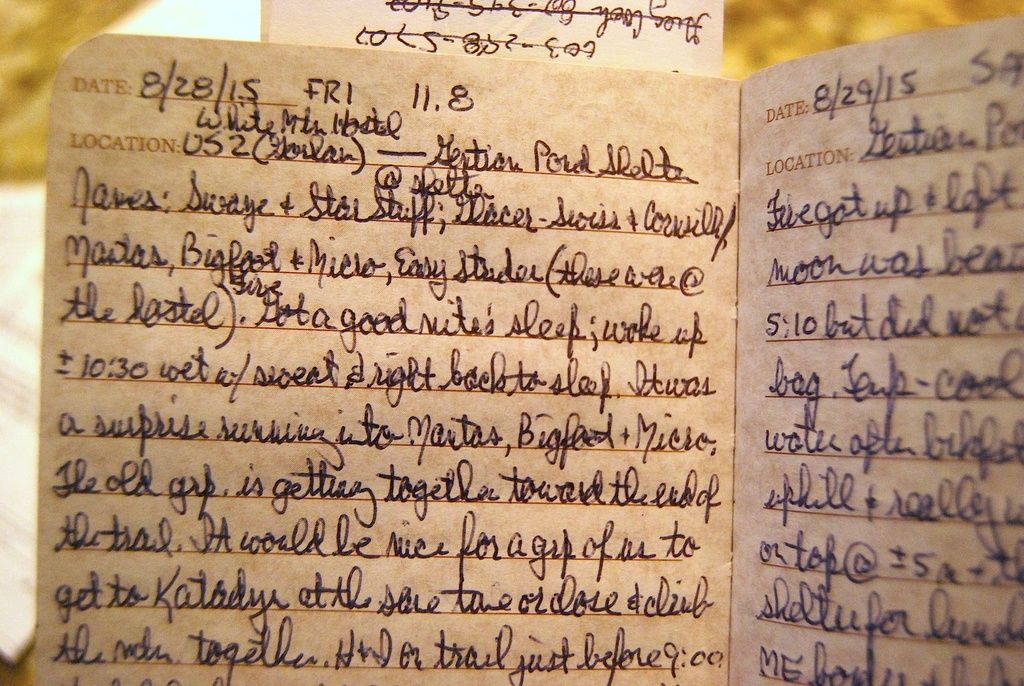 DATE: 8/28/15 FRI 11.8
White Mtn Hostel
LOCATION: US 2 (Gorham) — Gentian Pond Shelter
@ shelter
Names: Swaye & Star Stuff; - Swiss &
Mantas, Bigfoot & Micro, Easy Strider (these were @
the hostel). Five Got a good nite's sleep; woke up
± 10:30 wet w/ sweat & right back to sleep. It was
a surprise running into Mantas, Bigfoot + Micro.
The old grp. is getting together toward the end of
the trail. It would be nice for a grp of us to
get to Katadyn at the same time or close & climb
the mtn. together. H+I on trail just before 9:00
DATE: 8/29/15
LOCATION: Gentian
Five got up & left
moon was
5:10 but did not
bag. Temp - cool
water after
uphill & really
on top @ ±5
shelter for
ME